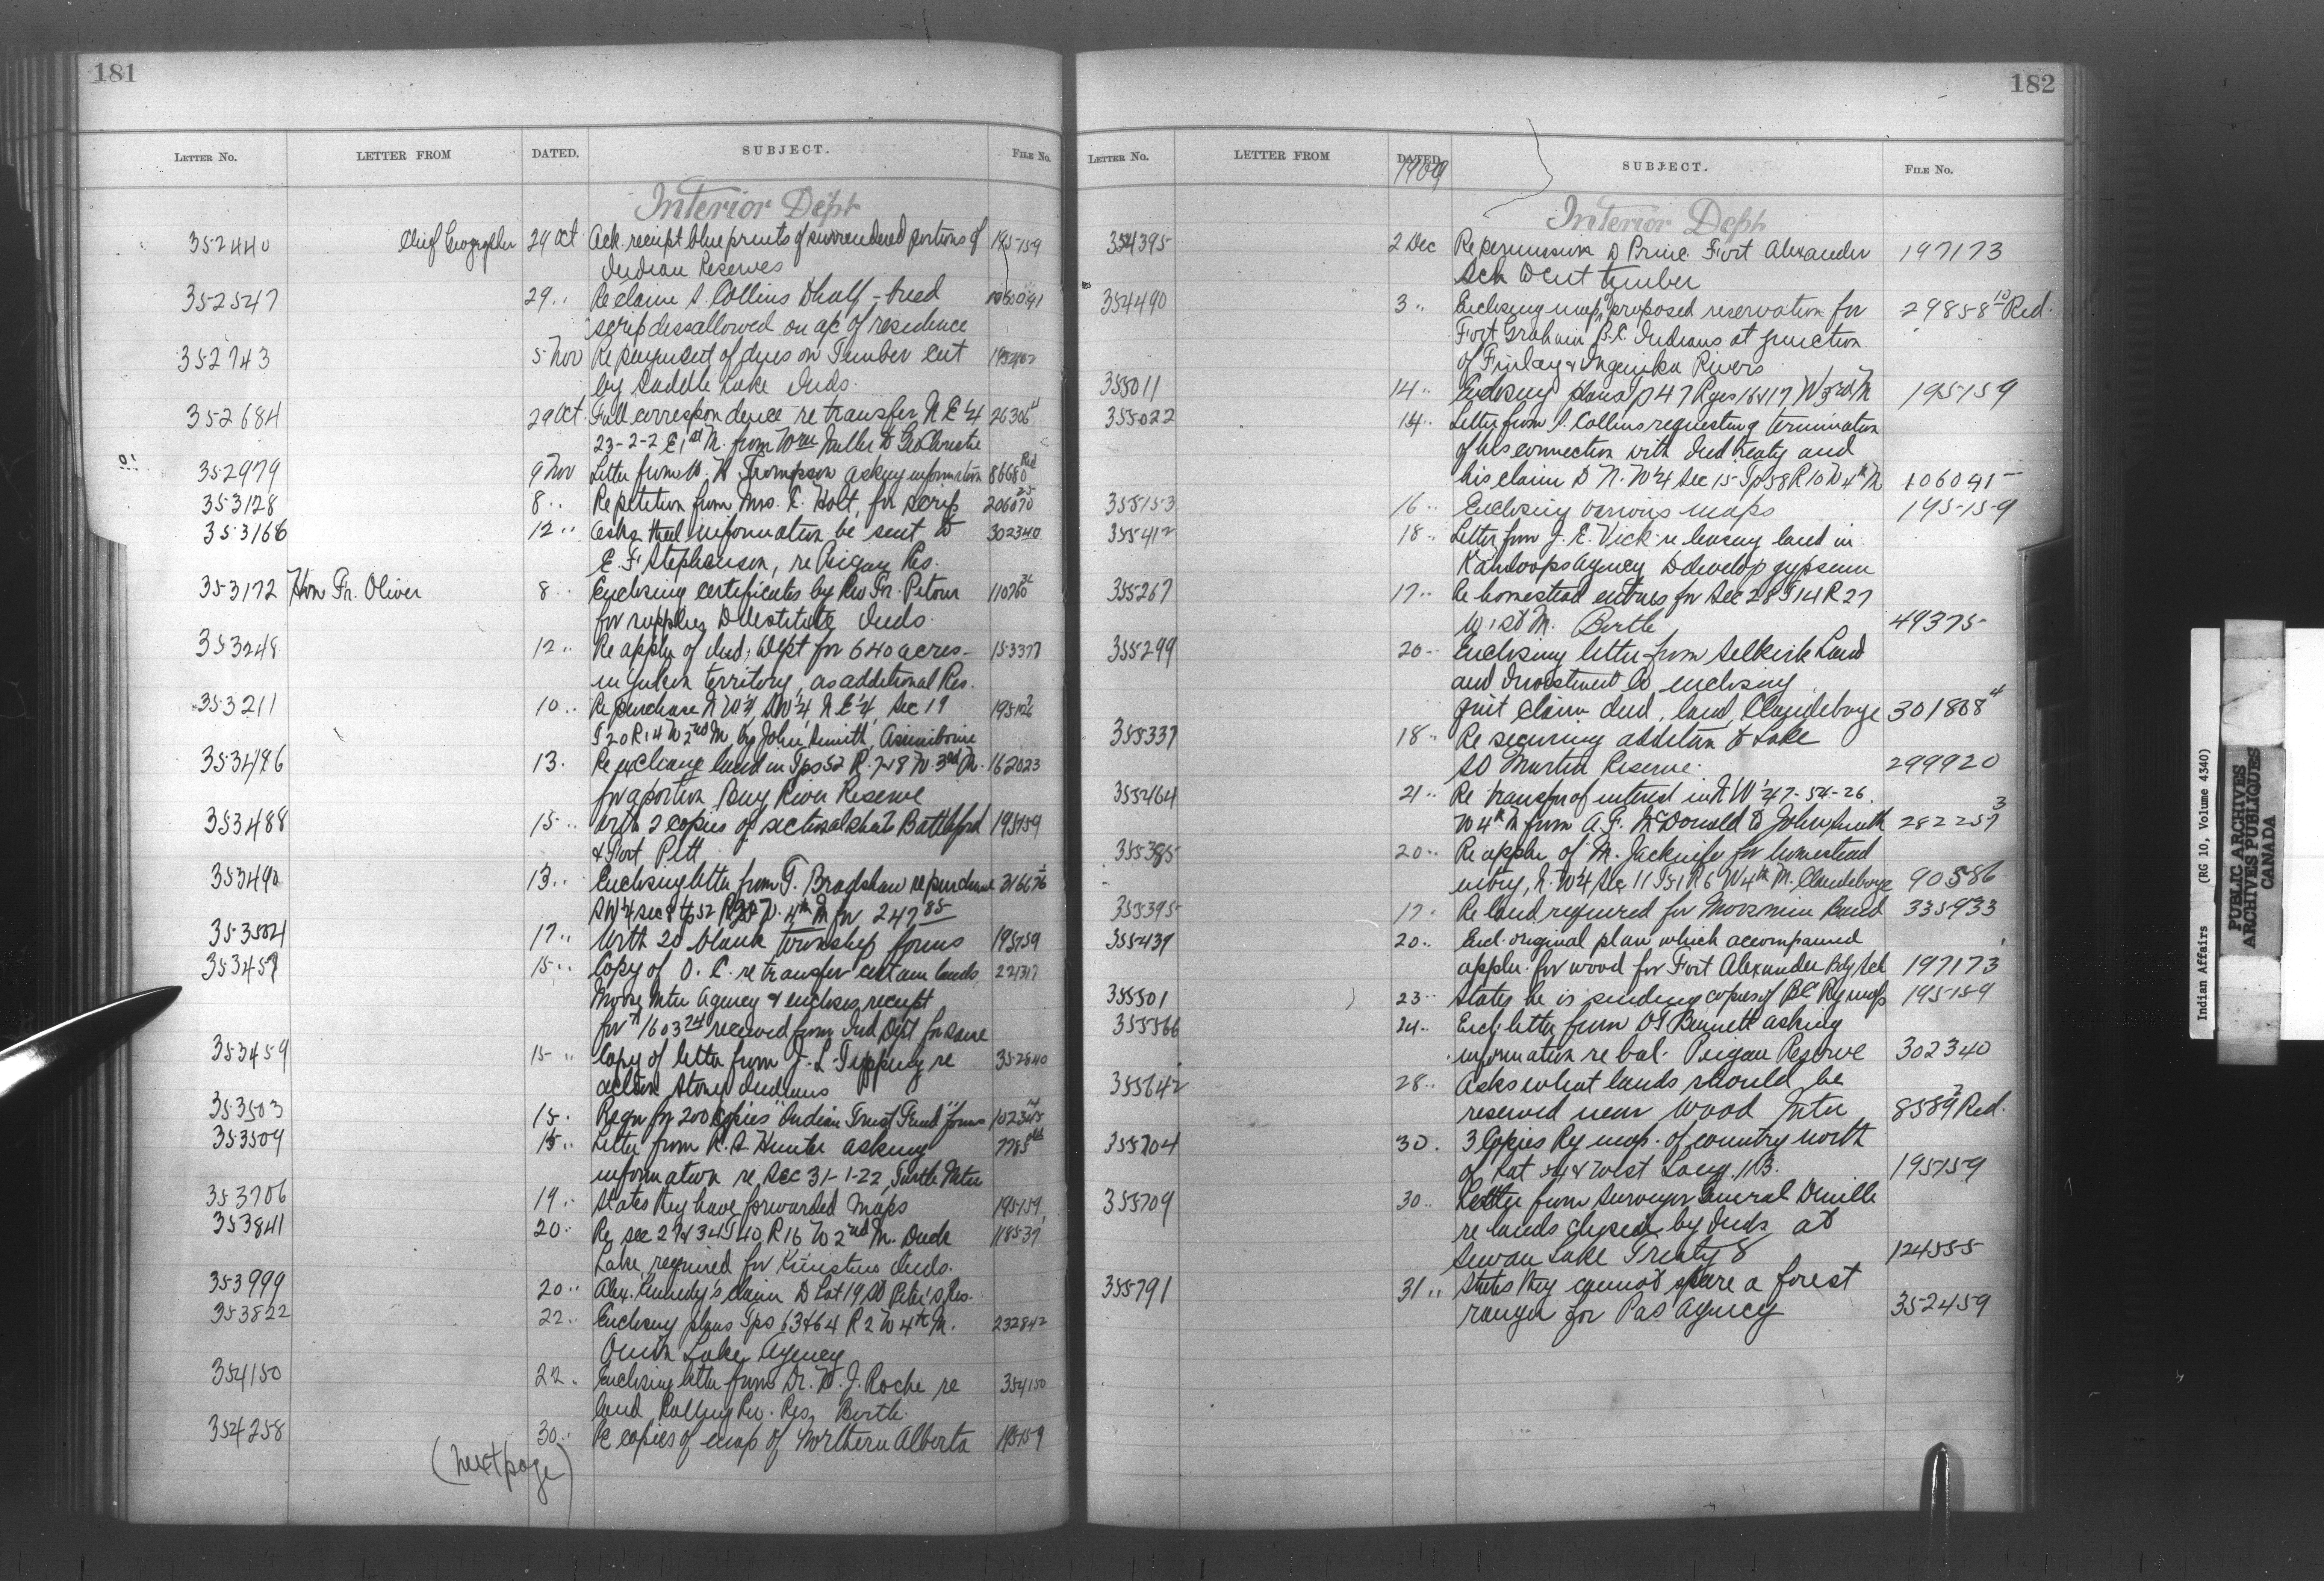 181
LETTER No. LETTER FROM DATED. SUBJECT. FILE No.
Interior Dept
352440 Chief Geographer 29 Oct Ack. receipt blue prints of surrendered portions of 195159
Indian Reserves
352547 29 " Re claim S. Collins to half-breed
scrip dissallowed on a/c of residence
352743 5 Nov Re payment of dues on Timber cut
by Saddle Lake Inds.
352684 29 Oct Full correspondence re transfer N.E ¼ 26306
23-2-2 E 1st M. from Wm Miller to Geo Christie
352979 9 Nov Letter from W. H Thompson asking information 86680 Red
353128 8 " Re petition from Mrs. C. Holt, for scrip 206070 25
353166 12 " Asks that information be sent to 302340
E. F Stephenson, re Peigan Res.
353172 Hon Fr. Oliver 8 " Enclosing certificates by Rev Fr. Pitour
for supplies to destitute Inds.
353248 12 " Re appln of Ind. Dept for 640 acres 153377
in Yukon territory, as additional Res.
353211 10 " Re purchase N W ¼, S W ¼, N E ¼, Sec 19
T 20 R 14 W 2nd M. by John Smith, Assiniboine
353486 13. Re exchange land in Tps 52 R. 7 & 8 W. 3rd M. 162023
for a portion Big River Reserve
353488 15 " With 2 copies of sectional sheets Battleford 195159
& Fort Pitt
353490 13 " Enclosing letter from T. Bradshaw re purchase
SW ¼ sec 8 tp 52 W. 4th M for 247 85
353504 17 " With 20 blank township forms 195159
353457 15 " Copy of O. C. re transfer certain lands, 221317
Moose Mtn Agency & encloses receipt
for $1603 24 received from Ind Dept for same
353459 15 " Copy of letter from J. L. Tipping re 352640
action Stony Indians
353503 15. Reqn for 200 copies "Indian Trust Fund" forms
353509 15 " Letter from R. S Hunter asking
information re Sec 31-1-22, Turtle Mtn
353706 19 " States they have forwarded Maps 195159
353841 20 " Re sec 27 & 34 T 40 R 16 W 2nd M. Duck 118537
Lake, required for Kinistino Inds.
353999 20 " Alex. Kennedy's claim to Lot 19 St Peter's Res.
353822 22 " Enclosing plans Tps 63 & 64 R 2 W 4th M. 232842
Onion Lake Agency
354150 22 " Enclosing letter from Dr. W. J. Roche re 354150
land Rolling Riv. Res, Birtle.
354258 30 " Re copies of map of Northern Alberta 195159
(next page)
182
LETTER No. LETTER FROM DATED. SUBJECT. FILE No.
1909
Interior Dept
354395 2 Dec Re permission to Princ. Fort Alexander 197173
Sch to cut timber
354490 3 " Enclosing map of proposed reservation for 29858 10 Red.
Fort Graham B.C. Indians at junction
of Finlay & Ingenika Rivers
355011 14 " Enclosing plans Tp 47 Rges 16 & 17 W 3rd M 195159
355022 14 " Letter from S. Collins requesting termination
of his connection with Ind treaty and
his claim to N. W ¼ Sec 15 Tp 58 R 10 W 4th M 106041
355153 16 " Enclosing various maps 195159
355412 18 " Letter from J. E. Vick re leasing land in
Kamloops Agency to develop gypsum
355267 17 " Re homestead entries for Sec 28 T 14 R 27
W 1st M. Birtle 49375
355299 20 " Enclosing letter from Selkirk Land
and Investment Co enclosing
quit claim deed, land, Clandeboye 301808 4
355337 18 " Re securing addition to Lake
St Martin Reserve. 299920
355464 21 " Re transfer of interest in N W ¼ 7-54-26
W 4th M from A. F. McDonald to John Smith 282257 3
355385 20 " Re appln. of M. Jacknife for homestead
entry, N. W ¼ Sec 11 T 51 R 6 W 4th M. Clandeboye 90586
355395 17 " Re land required for Moosomin Band 335933
355439 20 " Encl. original plan which accompanied
appln. for wood for Fort Alexander Bdg Sch 197173
355501 23 " States he is sending copies of B.C. Ry maps 195159
355566 24 " Encl. letter from Bennett asking
information re bal. Peigan Reserve 302340
355642 28 " Asks what lands should be
reserved near Wood Mtn 8589 7 Red.
355704 30. 3 Copies Ry map. of country north
of Lat 54 & West Long. 113. 195159
355709 30 " Letter from Surveyor General Deville
re lands chosen by Inds at
Sewan Lake Treaty 8 124555
355791 31 " States they cannot spare a forest
ranger for Pas Agency 352459
Indian Affairs (RG 10, Volume 4340)
PUBLIC ARCHIVES
ARCHIVES PUBLIQUES
CANADA